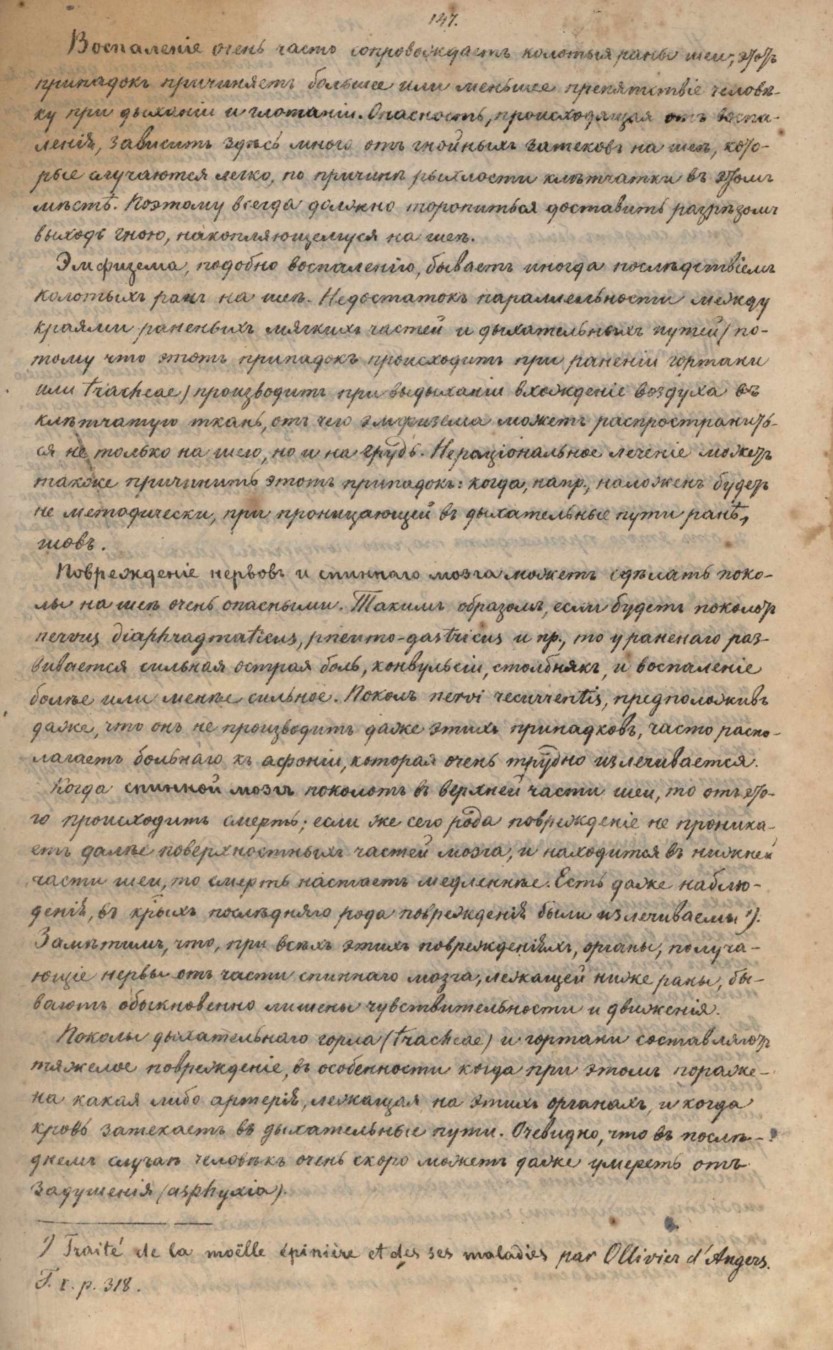 147.
Воспаленіе очень часто сопровождаетъ колотыя раны шеи; этотъ
припадокъ причиняетъ большее или меньшее препятствіе человѣ-
ку при дыханіи и глотаніи. Опасность, происходящая отъ воспа-
ленія, зависитъ здѣсь много отъ гнойныхъ затековъ на шеѣ, кото-
рые случаются легко, по причинѣ рыхлости клѣтчатки въ этомъ
мѣстѣ. Поэтому всегда должно торопиться доставить разрѣзомъ
выходъ гною, накопляющемуся на шеѣ.
Эмфизема, подобно воспаленію, бываетъ иногда послѣдствіемъ
колотыхъ ранъ на шеѣ. Недостатокъ параллельности между
краями раненыхъ мягкихъ частей и дыхательныхъ путей (по-
тому что этотъ припадокъ происходитъ при раненіи гортани
или tracheae) производитъ при выдыханіи вхожденіе воздуха въ
клѣтчатую ткань, отъ чего эмфизема можетъ распространить-
ся не только на шею, но и на грудь. Нераціональное леченіе можетъ
также причинить этотъ припадокъ: когда, напр., наложенъ будетъ
не методически, при проницающей въ дыхательные пути ранѣ,
шовъ.
Поврежденіе нервовъ и спиннаго мозга можетъ сдѣлать поко-
лы на шеѣ очень опасными. Такимъ образомъ, если будетъ поколотъ
nervus diaphragmaticus, pneumo-gastricus и пр., то у раненаго раз-
вивается сильная острая боль, конвульсіи, столбнякъ, и воспаленіе
болѣе или менѣе сильное. Поколъ nervi recurrentis, предположивъ
даже, что онъ не производитъ даже этихъ припадковъ, часто распо-
лагаетъ больнаго къ афоніи, которая очень трудно излечивается.
Когда спинной мозгъ поколотъ въ верхней части шеи, то отъ это-
го происходитъ смерть; если же сего рода поврежденіе не проника-
етъ далѣе поверхностныхъ частей мозга, и находится въ нижней
части шеи, то смерть настаетъ медленнѣе. Есть даже наблю-
денія, въ крыхъ послѣдняго рода поврежденія были излечиваемы ¹).
Замѣтимъ, что, при всѣхъ этихъ поврежденіяхъ, органы, получа-
ющіе нервы отъ части спиннаго мозга, лежащей ниже раны, бы-
ваютъ обыкновенно лишены чувствительности и движенія.
Поколы дыхательнаго горла (tracheae) и гортани составляютъ
тяжелое поврежденіе, въ особенности когда при этомъ пораже-
на какая либо артерія, лежащая на этихъ органахъ, и когда
кровь затекаетъ въ дыхательные пути. Очевидно, что въ послѣ-
днемъ случаѣ человѣкъ очень скоро можетъ даже умереть отъ
задушенія (asphyxia).
¹) Traité de la moëlle épinière et des ses maladies par Ollivier d'Angers.
T. 1. p. 318.